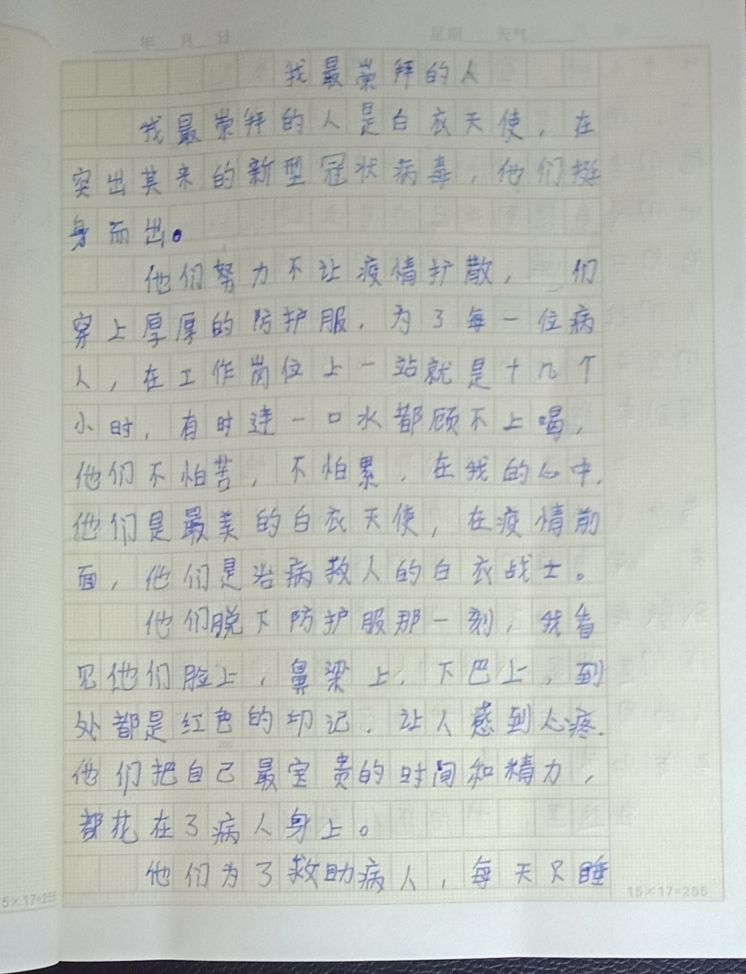 年 月 日 星期 天气
我最崇拜的人
我最崇拜的人是白衣天使，在
突出其来的新型冠状病毒，他们挺
身而出。
他们努力不让疫情扩散， 们
穿上厚厚的防护服，为了每一位病
人，在工作岗位上一站就是十几个
小时，有时连一口水都顾不上喝，
他们不怕苦，不怕累，在我的心中，
他们是最美的白衣天使，在疫情前
面，他们是治病救人的白衣战士。
他们脱下防护服那一刻，我看
见他们脸上，鼻梁上，下巴上，到
处都是红色的印记，让人感到心疼，
他们把自己最宝贵的时间和精力，
都花在了病人身上。
他们为了救助病人，每天只睡
5×17=255
15×17=255